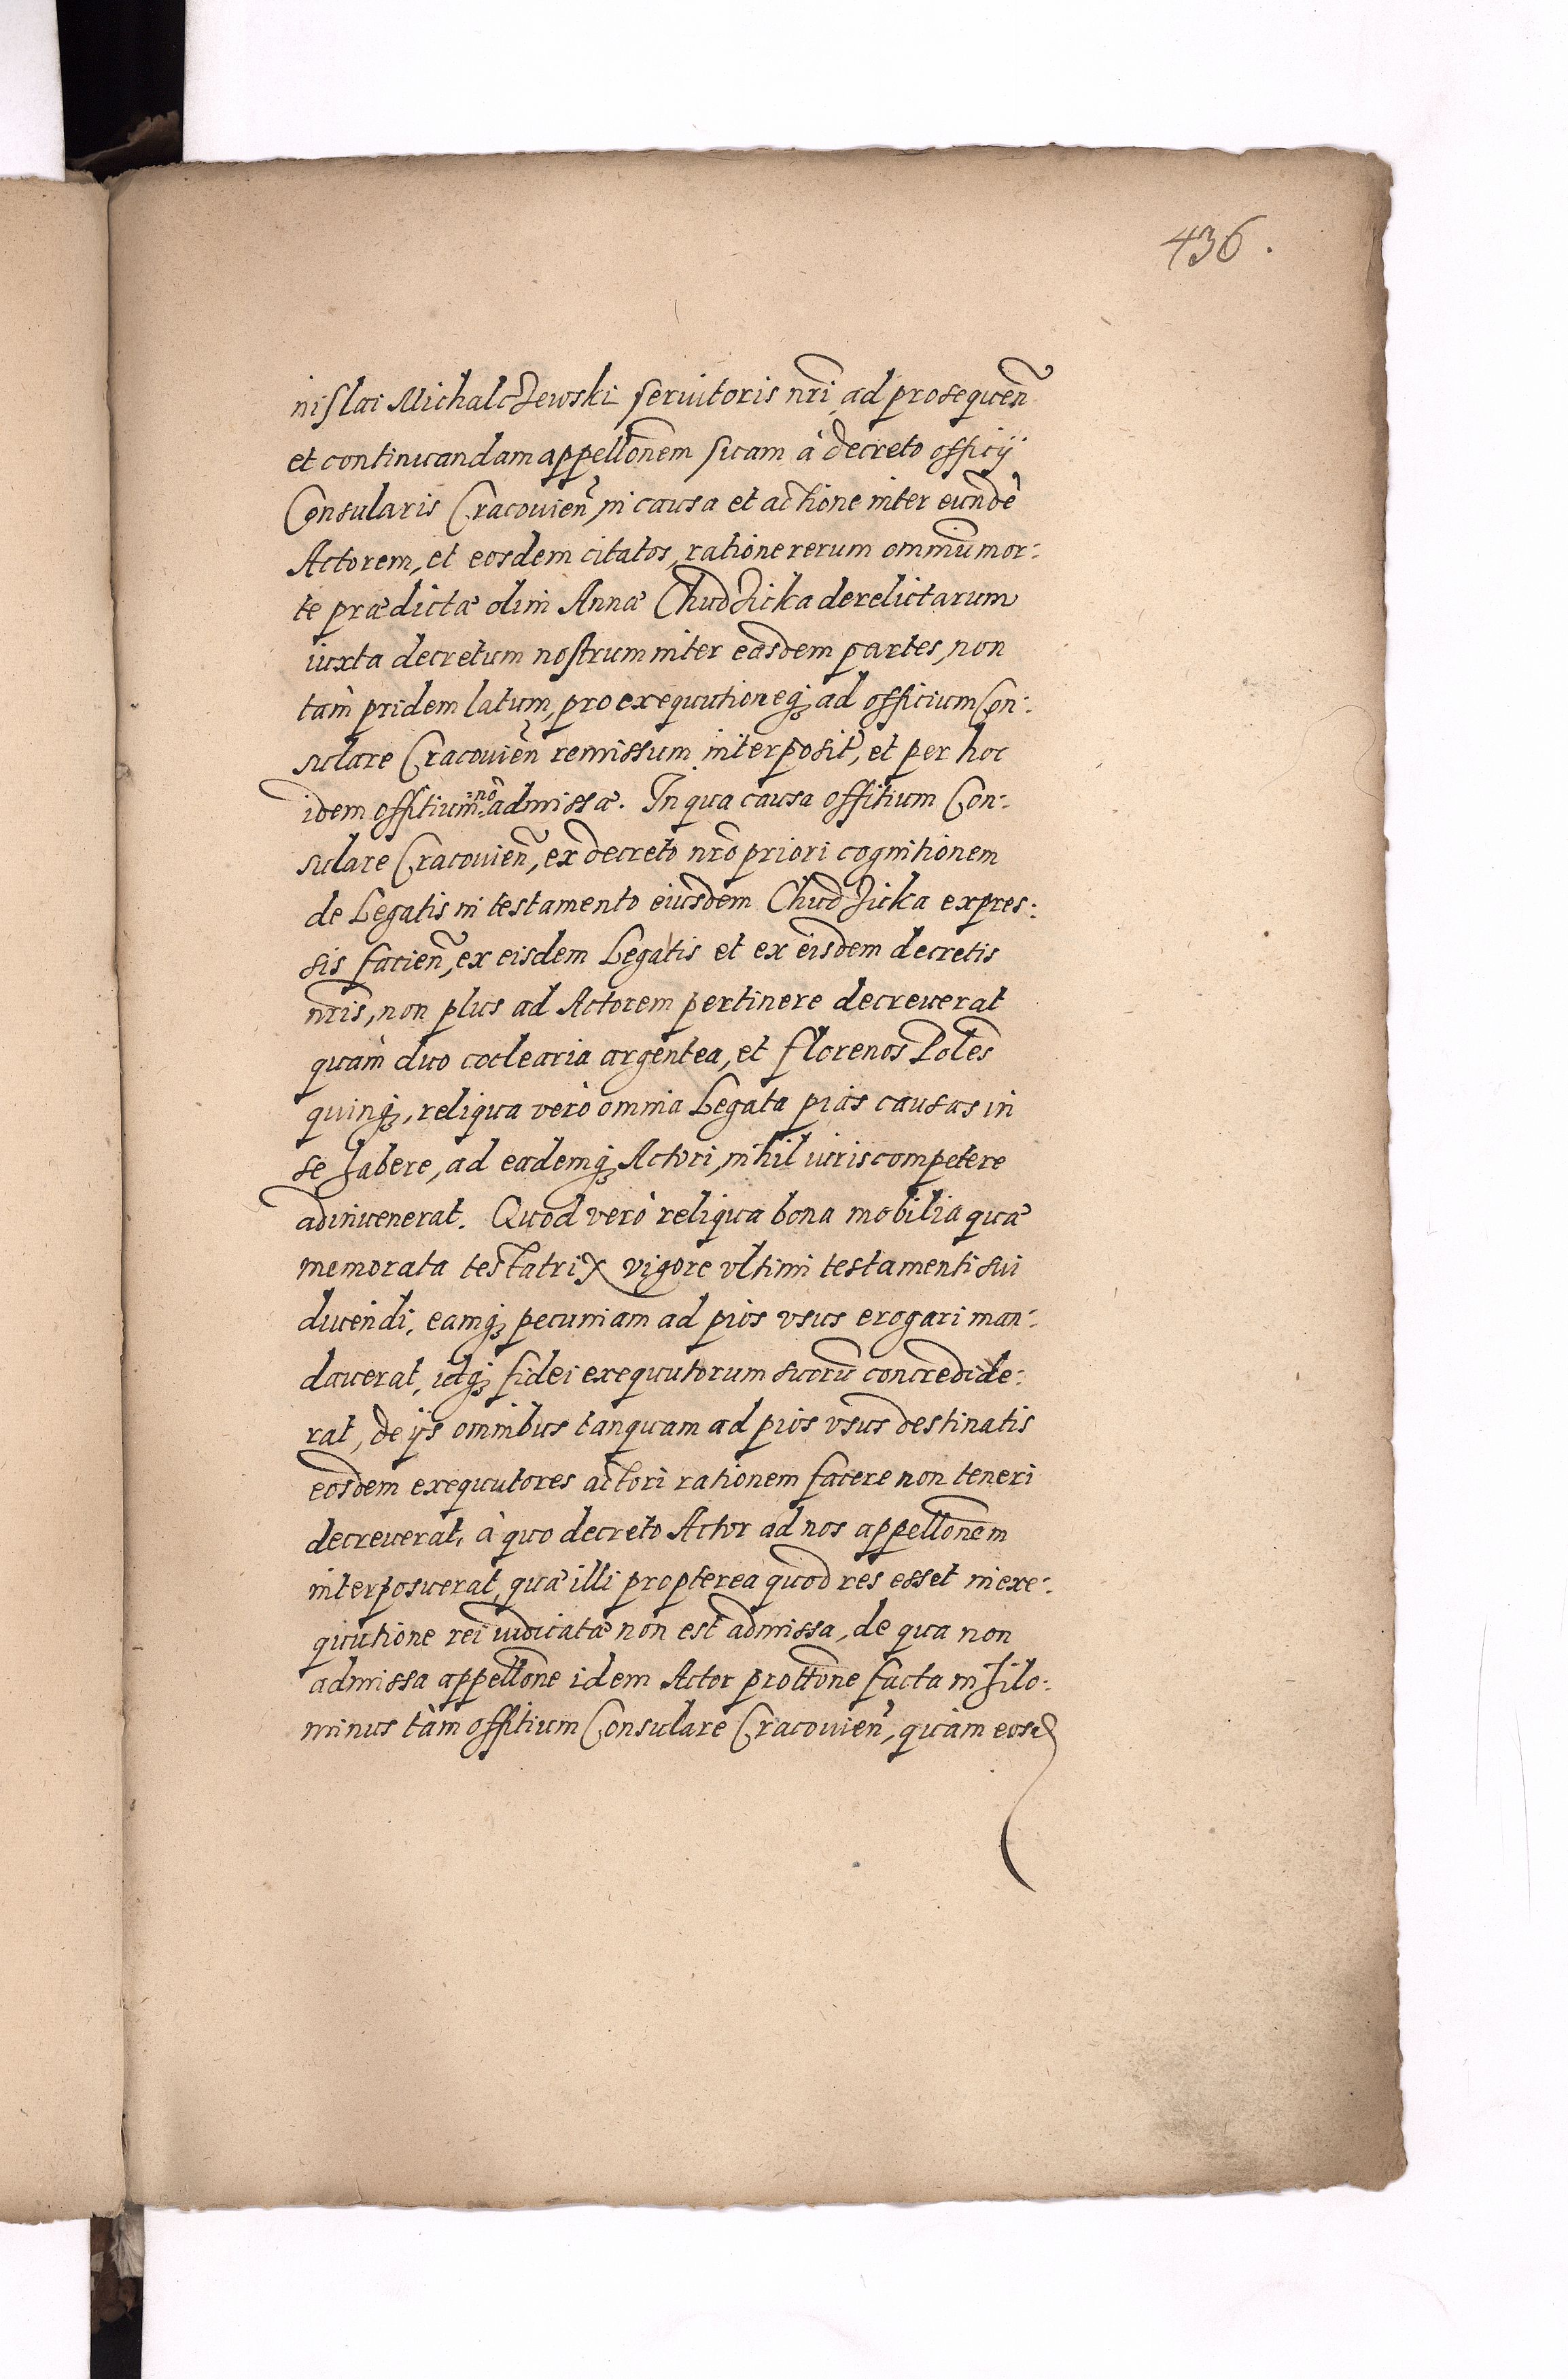 436.
nislai Michalczewski servitoris nri ad prosequen
et continuandam appellonem suam à decreto officij
Consularis Cracovien in causa et actione inter eundẽ
Actorem, et eosdem citatos, ratione rerum omniũ mor:
te prædictæ olim Annæ Chudzicka derelictarum
iuxta decretum nostrum inter easdem partes, non
tam pridem latum, pro exequutioneq; ad officium Con:
sulare Cracovien remissum interposit, et per hoc
idem offitium nõ admissæ. In qua causa offitium Con:
sulare Cracovien, ex decreto nro priori cognitionem
de Legatis in testamento eiusdem Chudzicka expres:
sis facien, ex eisdem Legatis et ex eisdem decretis
nris, non plus ad Actorem pertinere decreverat
quàm duo coclearia argentea, et florenos Poles
quinq;, reliqua verò omnia Legata pias causas in
se habere, ad eademq; Actori, nihil iuris competere
adinvenerat. Quod verò reliqua bona mobilia quæ
memorata testatrix vigore ultimi testamenti sui
divendi, eamq; pecuniam ad pios usus erogari man:
daverat, idq; fidei exequutorum suorũ concredide:
rat, de ijs omnibus tanquam ad pios usus destinatis
eosdem exequutores actori rationem facere non teneri
decreverat, à quo decreto Actor ad nos appellonem
interposuerat, quæ illi propterea quod res esset in exe:
quutione rei iudicatæ non est admissa, de qua non
admissa appellone idem Actor prottone facta nihilo:
minus tàm offitium Consulare Cracovien, quàm eosd